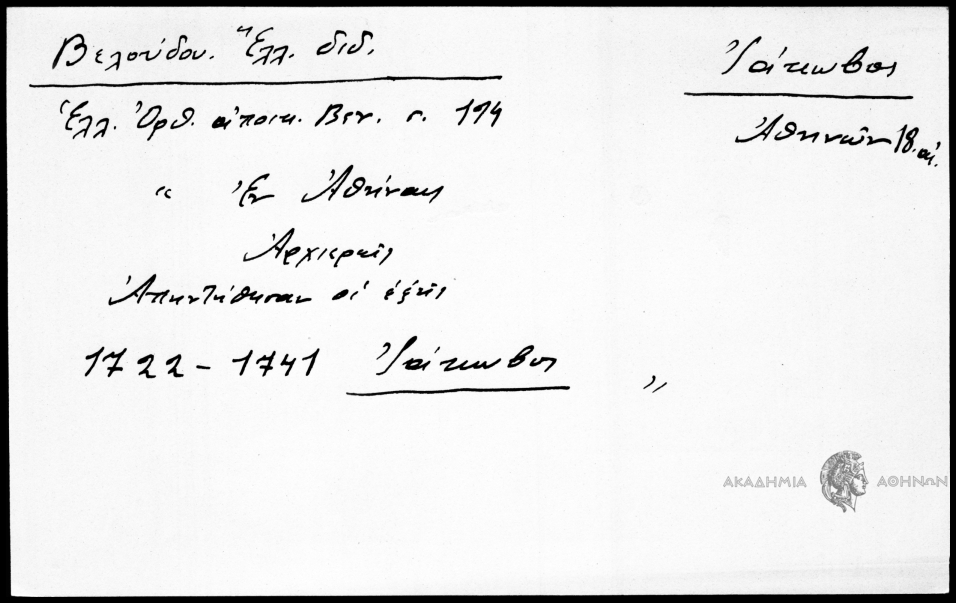 Βελούδου. Ἑλλ. διδ.
Ἰάκωβος
Ἀθηνῶν 18. αἰ.
Ἑλλ. Ὀρθ. ἀποικ. Βεν. σ. 194
“ Ἐν Ἀθήναις
Ἀρχιερεῖς
Ἀπηντήθησαν οἱ ἑξῆς
1722 - 1741 Ἰάκωβος "
ΑΚΑΔΗΜΙΑ ΑΘΗΝΩΝ